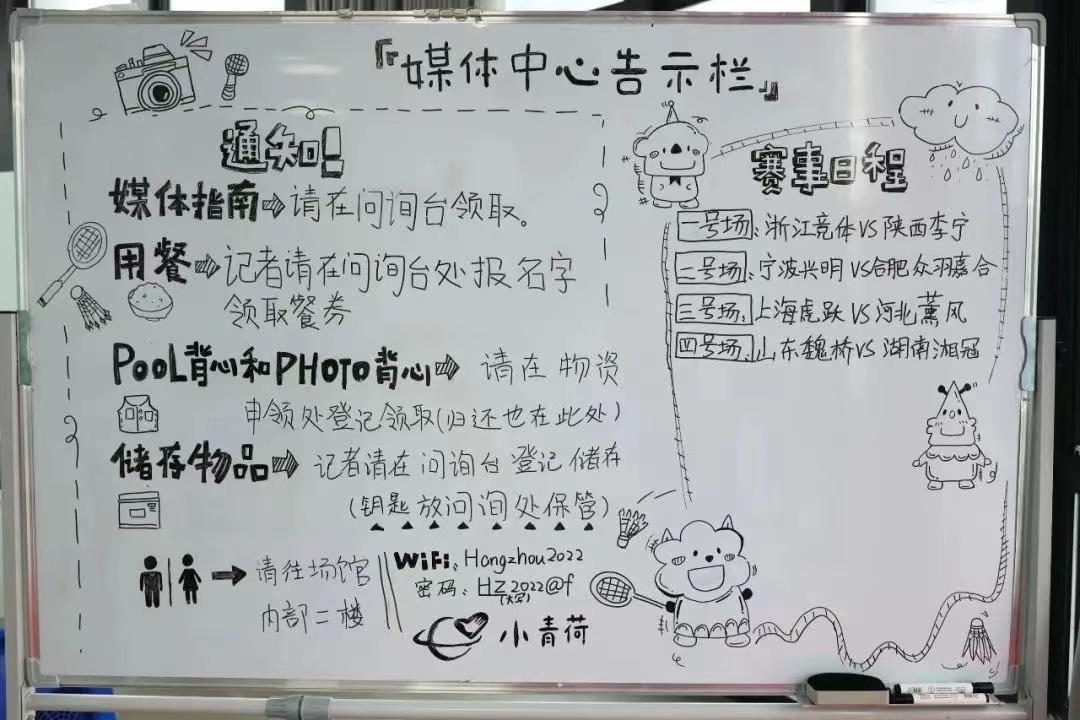 『媒体中心告示栏』
通知!
媒体指南⇨请在问询台领取。
用餐⇨记者请在问询台处报名字
领取餐券
POOL背心和PHOTO背心⇨请在物资
申领处登记领取(归还也在此处)
储存物品⇨记者请在问询台登记储存
(钥匙放问询处保管)
→请往场馆
内部二楼
WiFi:Hangzhou2022
密码:HZ2022@f
(大写)
小青荷
赛事日程
一号场:浙江竞体VS陕西李宁
二号场:宁波兴明VS合肥众羽嘉合
三号场:上海虎跃VS河北薰风
四号场:山东魏桥VS湖南湘冠